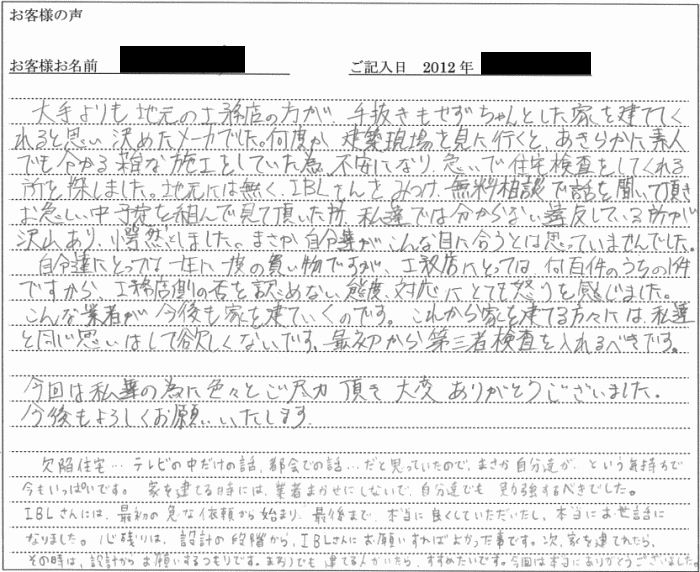 お客様の声
お客様お名前 ご記入日 2012年
大手よりも地元の工務店の方が 手抜きもせずちゃんとした家を建ててく
れると思い 決めたメーカでした。何度か 建築現場を見に行くと、あきらかに素人
でも分かる雑な施工をしていた為、不安になり 急いで住宅検査をしてくれる
所を探しました。地元には無く、IBLさんをみつけ、無料相談で話を聞いて頂き
お急しい中予定を組んで見て頂いた所、私達では分からない違反している所が
沢山あり、愕然としました。まさか自分達がこんな目に合うとは思っていませんでした。
自分達にとっては一生に一度の買い物ですが、工務店にとっては、何百件のうちの1件
ですから、工務店側の否を認めない態度、対応にとても怒りを感じました。
こんな業者が今後も家を建ていくのです。これから家を建てる方々には私達
と同じ思いはして欲しくないです、最初から第三者検査を入れるべきです。
今回は私達の為に色々とご尽力頂き 大変ありがとうございました。
今後もよろしくお願いいたします。
欠陥住宅… テレビの中だけの話、都会での話…だと思っていたので、まさか自分達が、という気持ちで
今もいっぱいです。 家を建てる時には、業者まかせにしないで、自分達でも 勉強するべきでした。
IBLさんには、最初の急な依頼から始まり、最後まで、本当に良くしていただいたし、本当にお世話に
なりました。心残りは、設計の段階から、IBLさんにお願いすればよかった事です。次、家を建てれたら、
その時は、設計からお願いするつもりです。まわりでも建てる人がいたら、すすめたいです。今回は本当にありがとうございました。